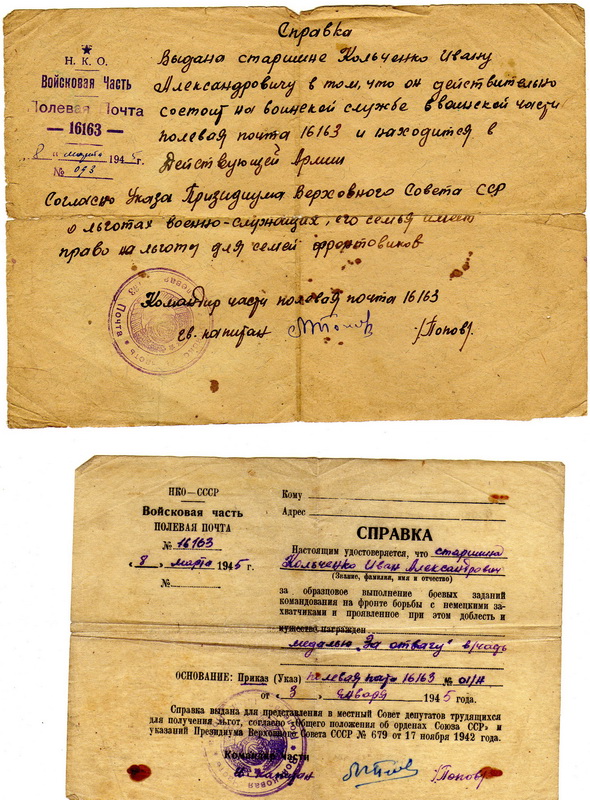 Справка
Н. К. О.
Войсковая Часть
Полевая Почта
— 16163 —
8 " марта 1945г.
№ 093
Выдана старшине Кольченко Ивану
Александровичу в том, что он действительно
состоит на воинской службе в воинской части
полевая почта 16163 и находится в
Действующей Армии
Согласно Указа Призидиума Верховного Совета ССР
о льготах военно-служащих, его семья имеет
право на льготы для семей фронтовиков
Командир части полевая почта 16163
гв. капитан Попов /Попов/.
НКО—СССР
Войсковая часть
ПОЛЕВАЯ ПОЧТА
№ 16163
« 8 » марта 1945 г.
№
Кому
Адрес
СПРАВКА
Настоящим удостоверяется, что старшина
Кольченко Иван Александрович
(Звание, фамилия, имя и отчество)
за образцовое выполнение боевых заданий
командования на фронте борьбы с немецкими за-
хватчиками и проявленное при этом доблесть и
мужество награжден
медалью „За отвагу"
ОСНОВАНИЕ: Приказ (Указ) полевая почта 16163 № 01/Н
от « 3 » января 1945 года.
Справка выдана для представления в местный Совет депутатов трудящихся
для получения льгот, согласно «Общего положения об орденах Союза ССР» и
указаний Президиума Верховного Совета СССР № 679 от 17 ноября 1942 года.
Командир части
гв. Капитан /Попов/